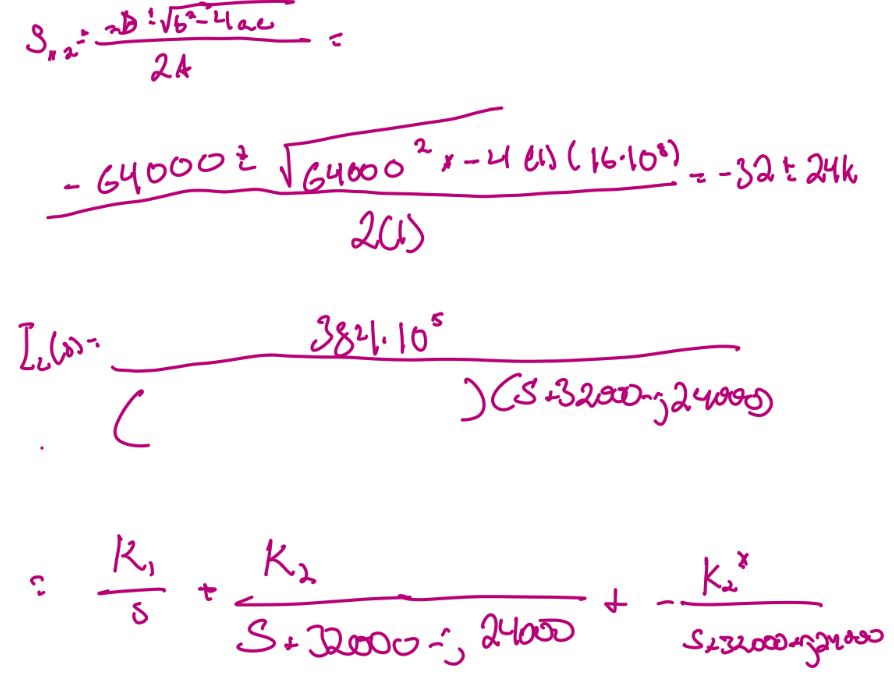 S₁,₂ = -b ± √b² - 4ac / 2A =
-64000 ± √64000² × -4(1)(16·10⁸) / 2(1) = -32 ± 24k
I₂(s) = 384·10⁵ / (          )(S+32000-j24000)
= K₁/S + K₂/S+32000-j24000 + -K₂*/S+32000+j24000